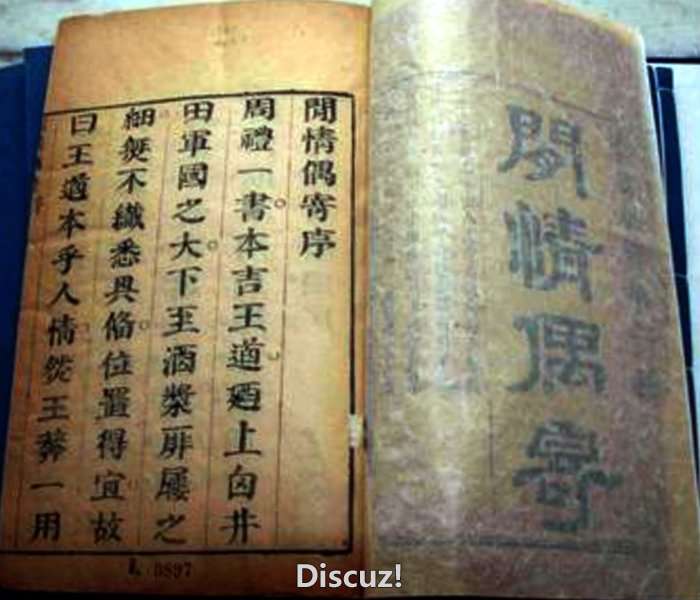 閒情偶寄
閒情偶寄序
周禮一書本言王道廼上自井
田軍國之大下至酒漿扉屨之
細無不纖悉具偹位置得宜故
曰王道本乎人情然王莽一用
0897
Discuz!